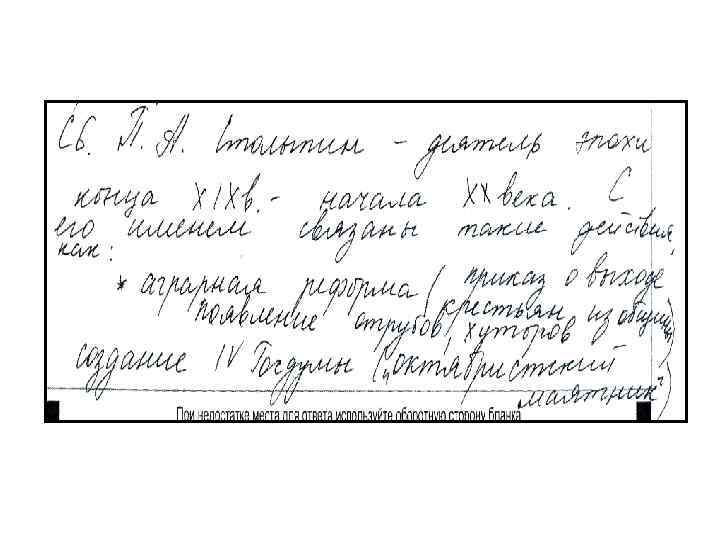 С6. П. А. Столыпин – деятель эпохи
конца XIXв. – начала XX века. С
его именем связаны такие действия,
как:
* аграрная реформа (приказ о выходе
крестьян из общины,
появление отрубов, хуторов)
создание IV Госдумы („октябристский
маятник")
При недостатке места для ответа используйте оборотную сторону бланка